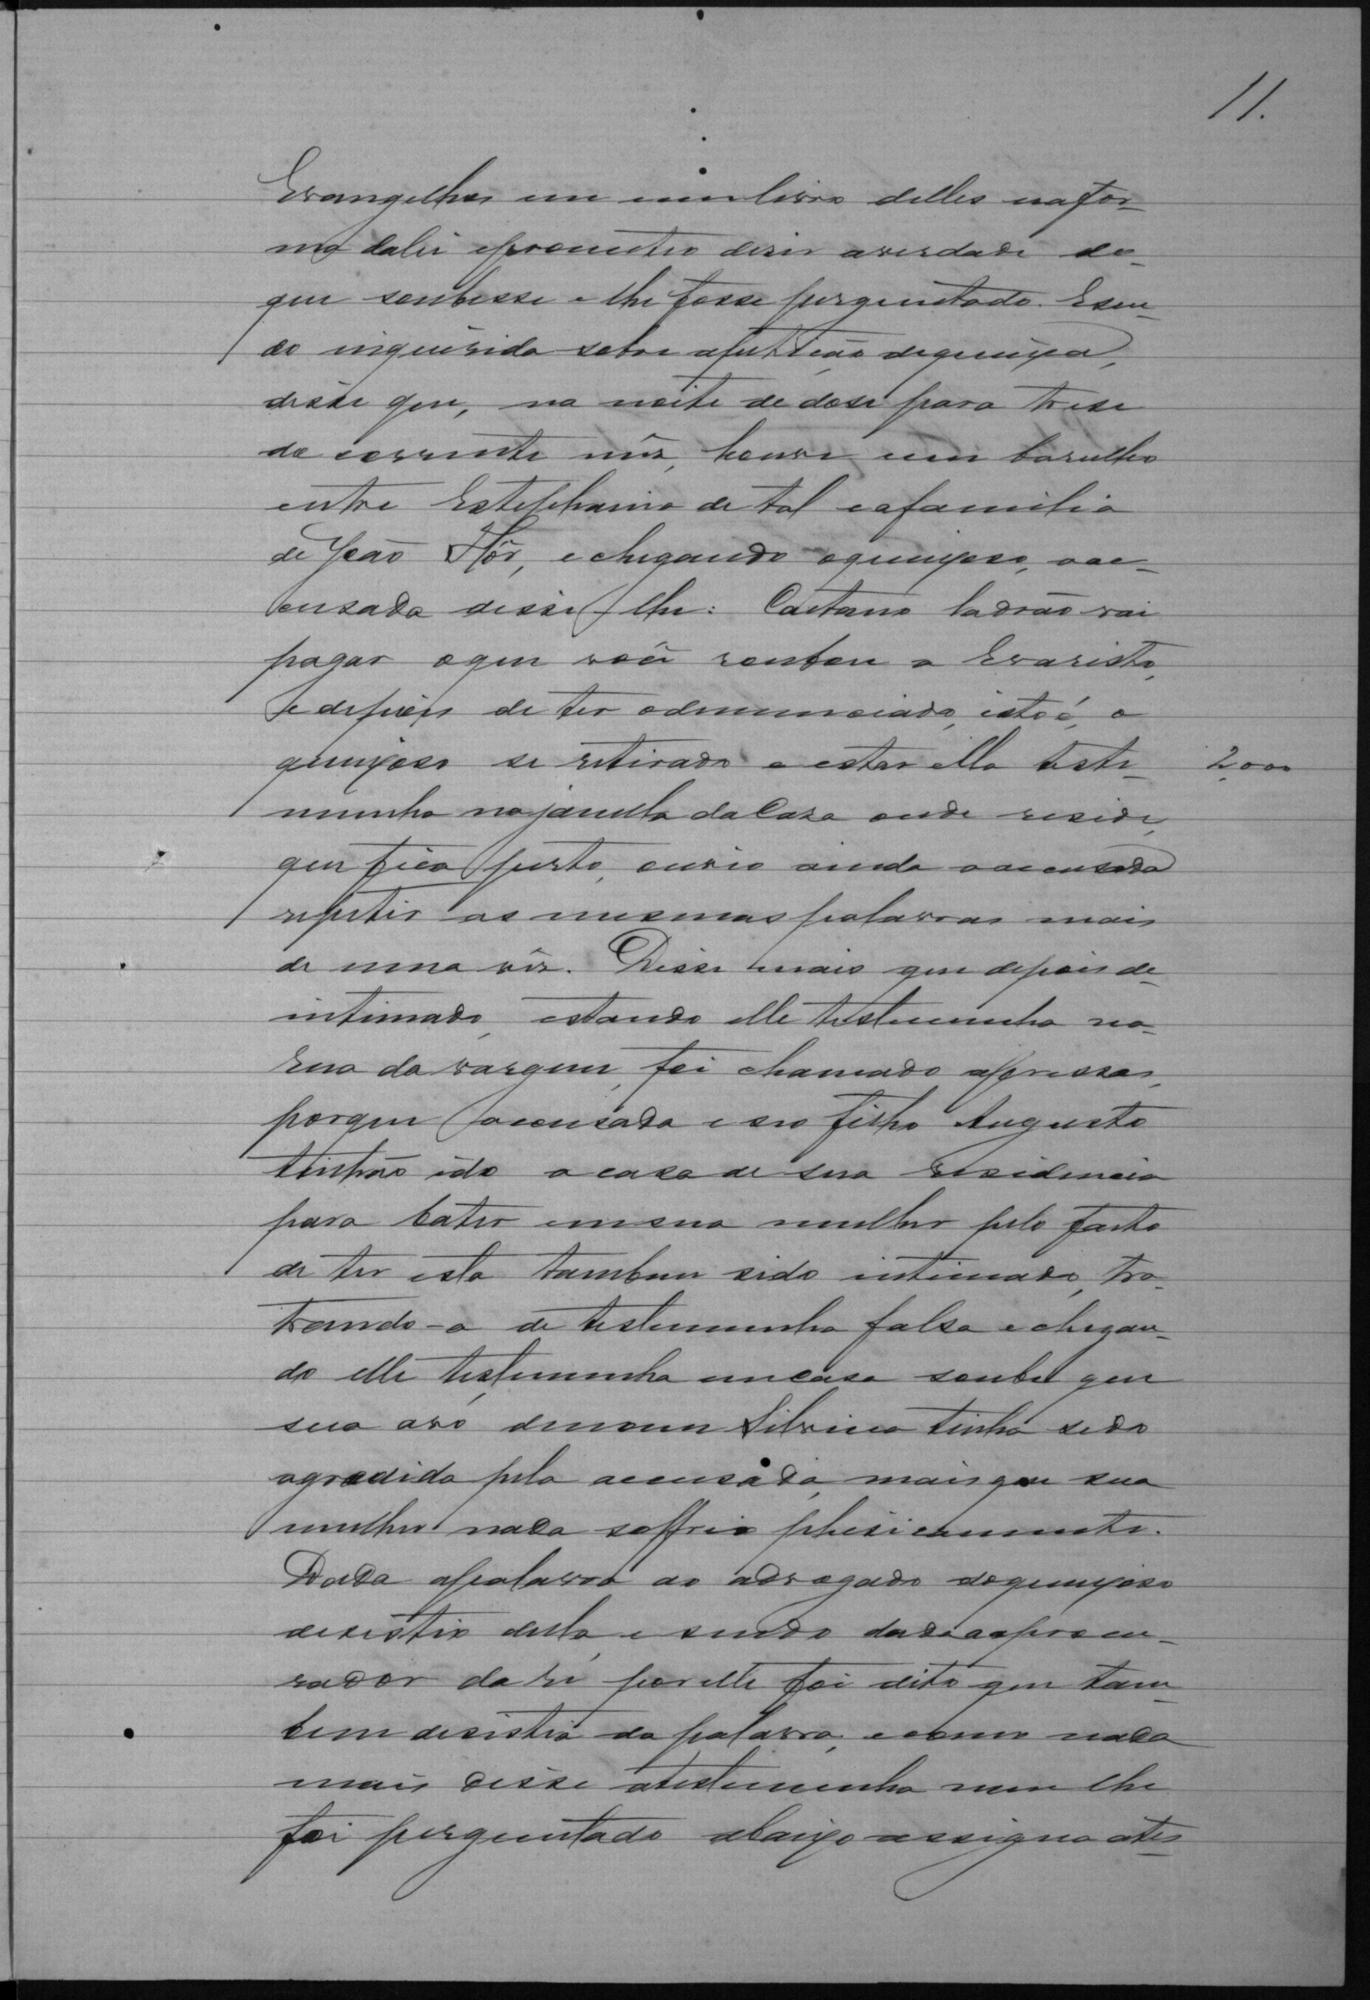 11.
Evangelhos em um livro delles na for-
ma da lei e prometteo diser a verdade do
que soubesse e lhe fosse perguntado. E sen-
do inquirida sobre a petição de queixa,
disse que, na noite de dose para trese
do corrente mês, houve um barulho
entre Estephania de tal e a familia
de João Hór, e chegando o queixoso, a ac-
cusada disse-lhe: Caetano ladrão vai
pagar o que você roubou a Evaristo,
e depois de ter o denunciado, isto é, o
queixoso se retirado e estar elle teste-
munha na janella da Casa onde reside,
que fica perto, ouvio ainda a accusada
repetir as mesmas palavras mais
de uma vês. Disse mais que depois de
intimado, estando elle testemunha na
Rua da vargem, foi chamado apressas,
porque a accusada e seo filho Augusto
tinhão ido a casa de sua residencia
para bater em sua mulher pelo facto
de ter esta tambem sido intimada, tra-
tando-a de testemunha falsa e chegan-
do elle testemunha em casa soube que
sua avó de nome Silvina tinha sido
agredida pela accusada, mais que sua
mulher nada soffrio phisicamente.
Dada a palavra ao advogado do queixoso
desistio della, e sendo dada ao procu-
rador da ré por elle foi dito que tam-
bem desistia da palavra, e como nada
mais disse a testemunha nem lhe
foi perguntado abaixo assigna a tes-
2,000